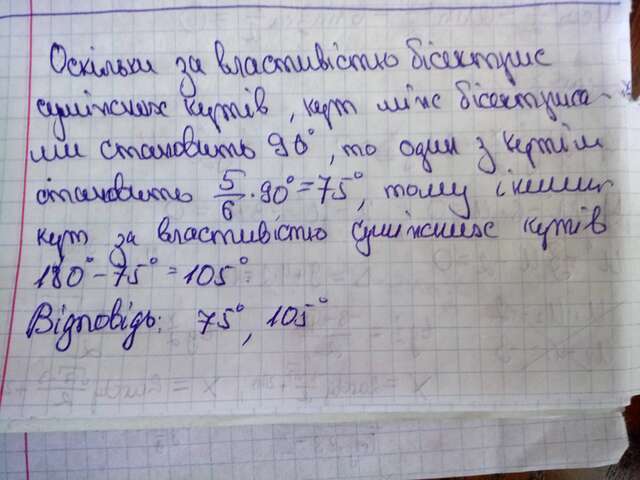 Оскільки за властивістю бісектрис
суміжних кутів, кут між бісектриса-
ми становить 90°, то один з кутів
становить 5/6 · 90° = 75°, тому інший
кут за властивістю суміжних кутів
180° - 75° = 105°
Відповідь: 75°, 105°